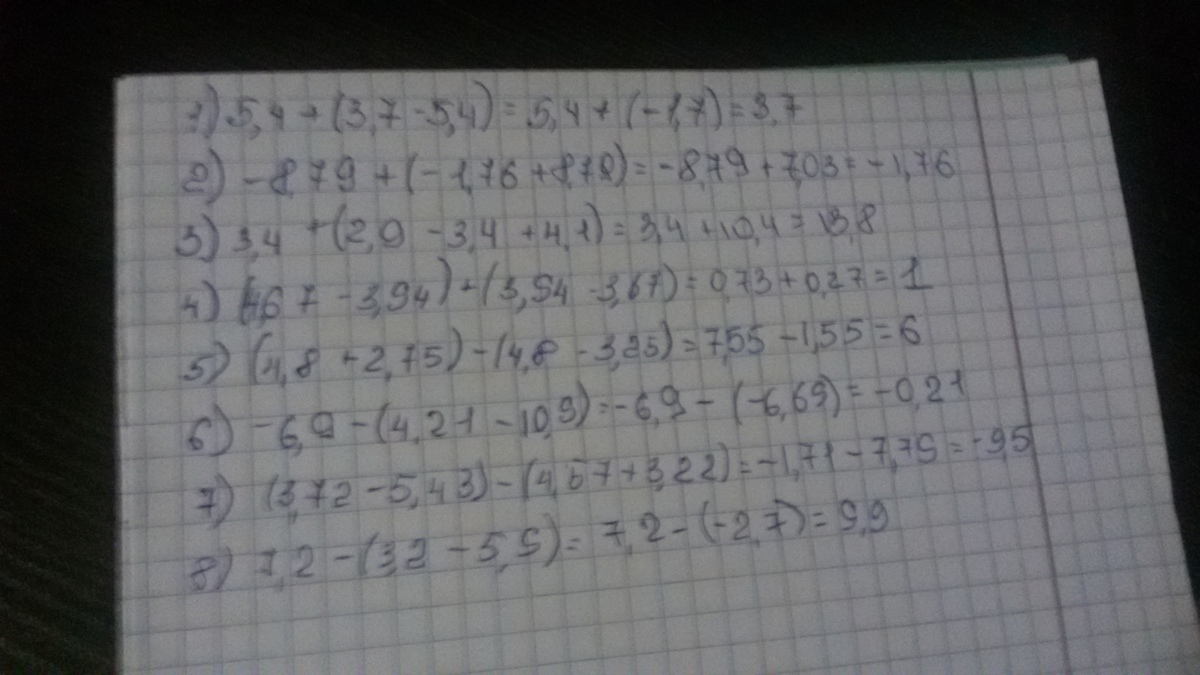 1) 5,4 + (3,7 - 5,4) = 5,4 + (-1,7) = 3,7
2) -8,79 + (-1,76 + 8,79) = -8,79 + 7,03 = -1,76
3) 3,4 + (2,9 - 3,4 + 4,1) = 3,4 + 10,4 = 13,8
4) (4,67 - 3,94) + (3,94 - 3,67) = 0,73 + 0,27 = 1
5) (4,8 + 2,75) - (4,8 - 3,25) = 7,55 - 1,55 = 6
6) -6,9 - (4,21 - 10,9) = -6,9 - (-6,69) = -0,21
7) (3,72 - 5,43) - (4,57 + 3,22) = -1,71 - 7,79 = -9,5
8) 7,2 - (3,2 - 5,9) = 7,2 - (-2,7) = 9,9